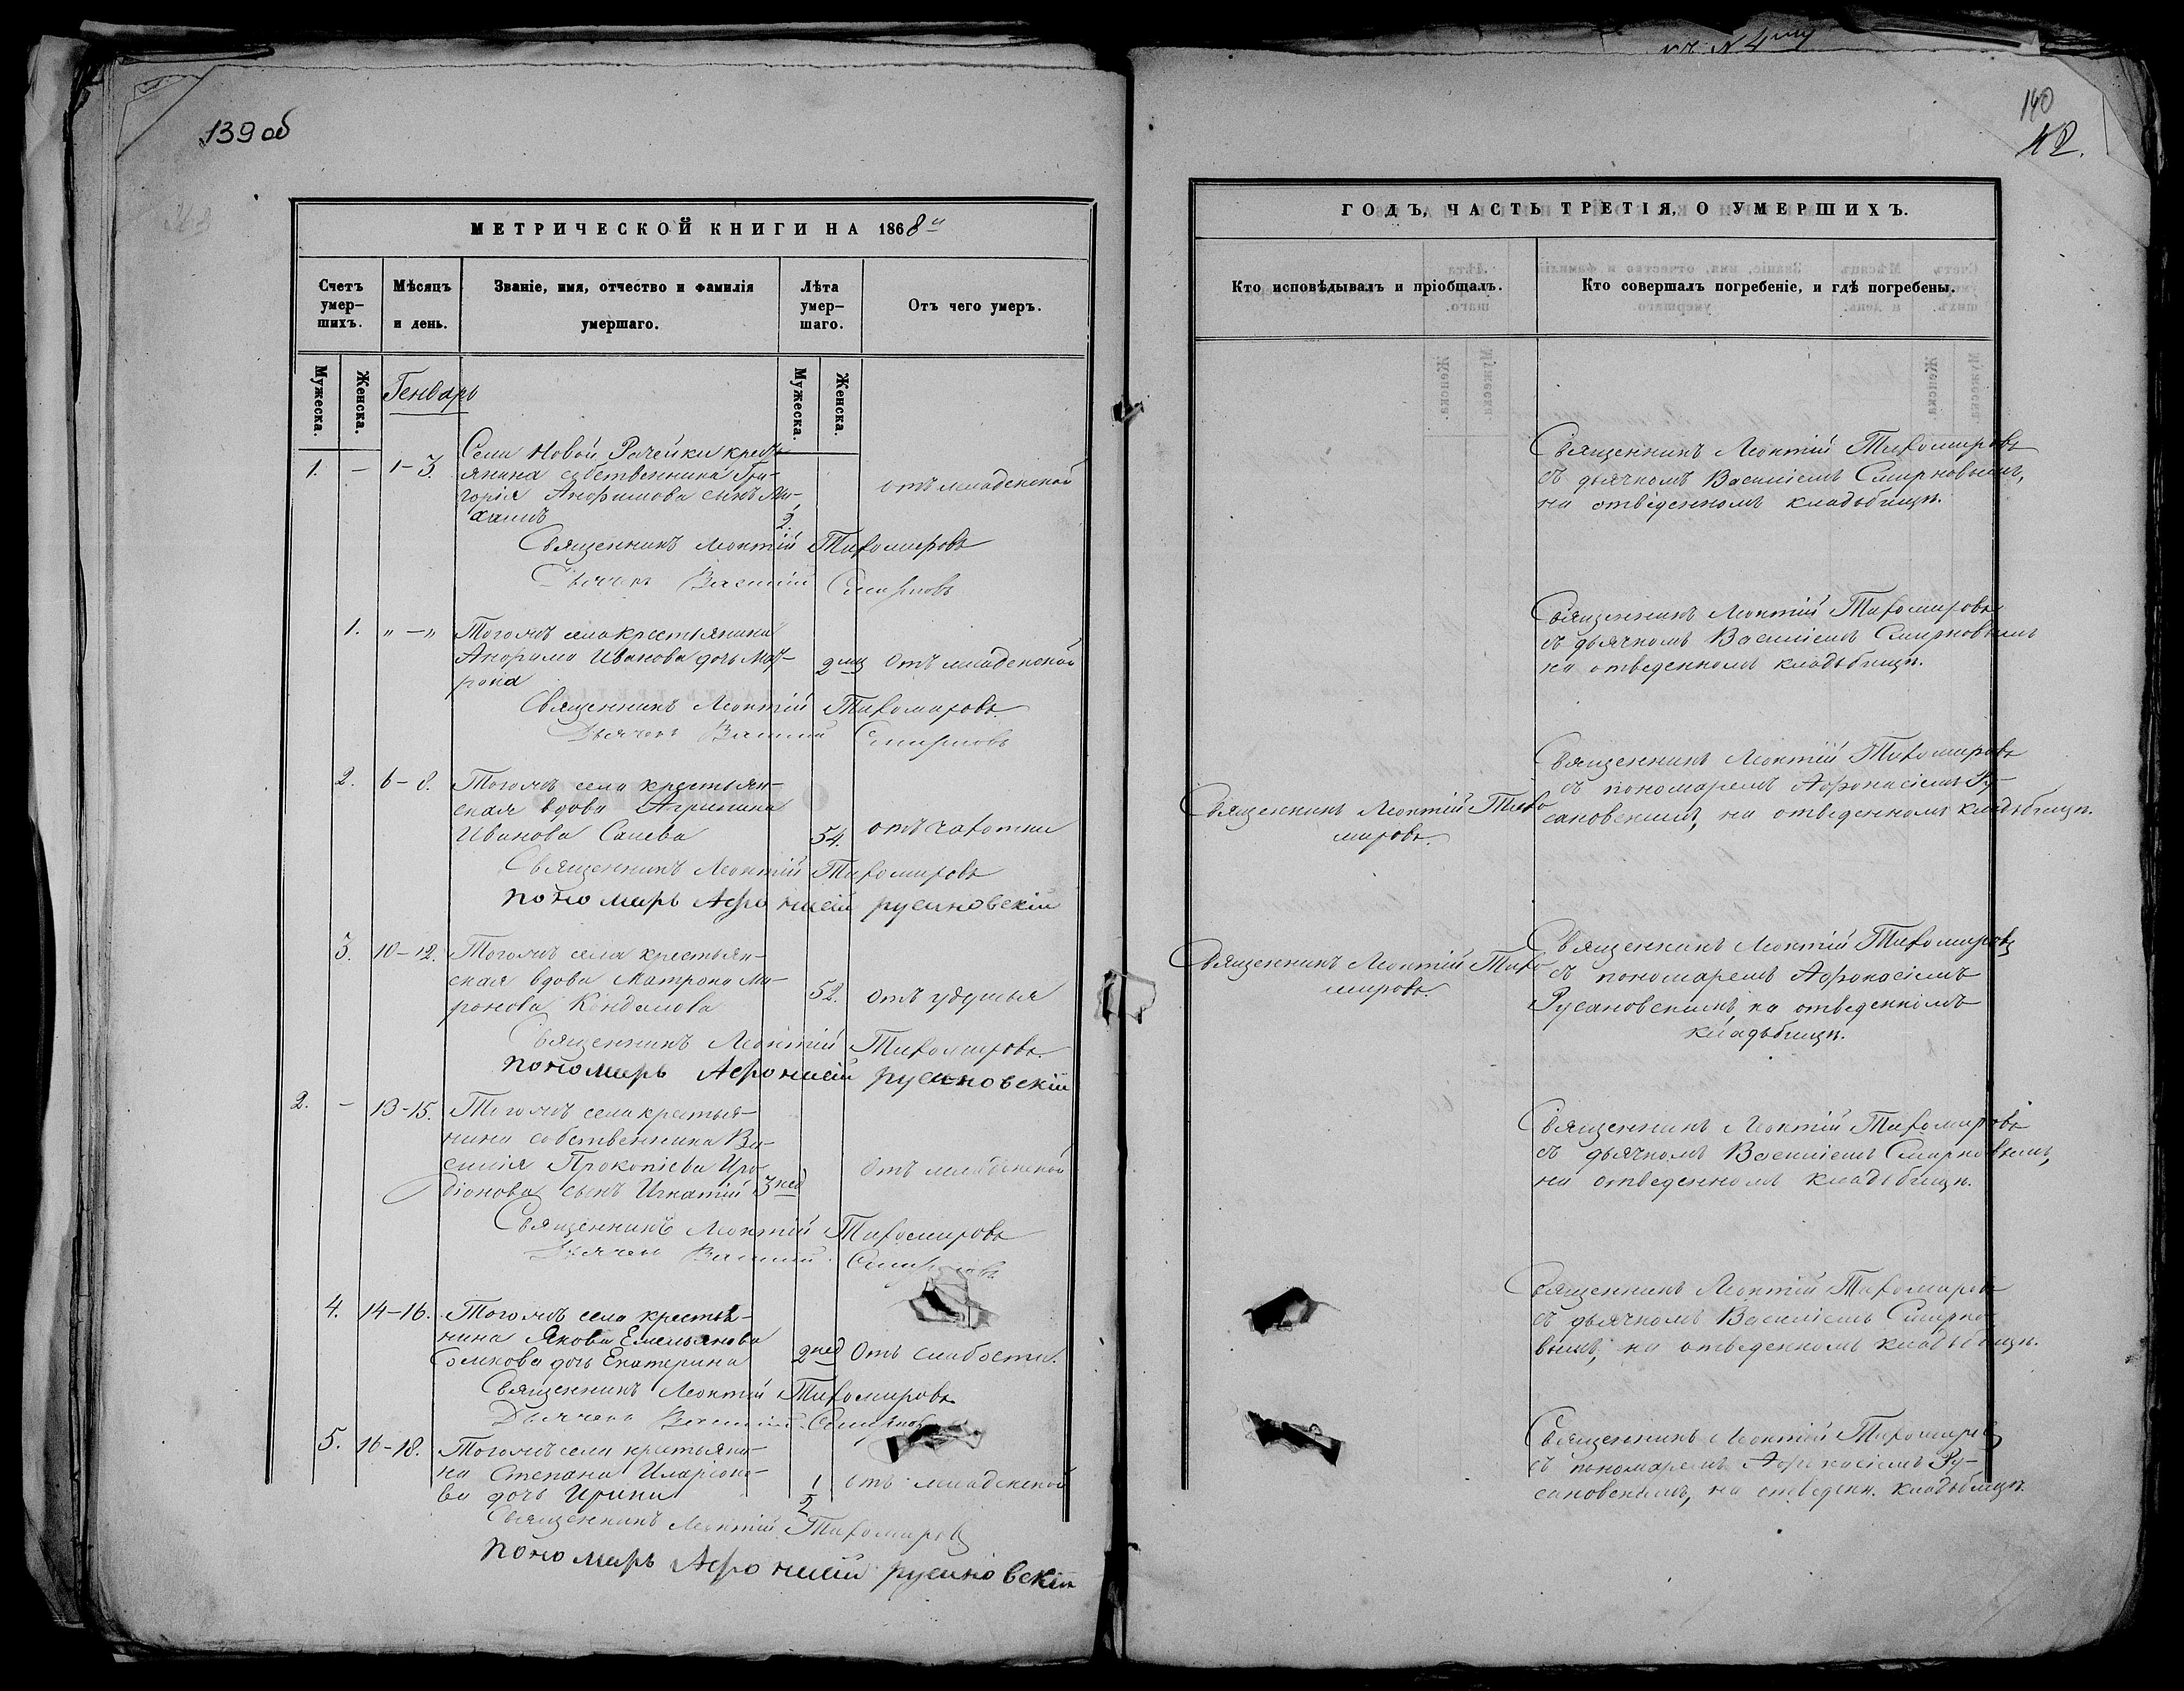 139 об
МЕТРИЧЕСКОЙ КНИГИ НА 1868й
Счетъ умер-шихъ.
Мѣсяцъ и день.
Званіе, имя, отчество и фамилія умершаго.
Лѣта умер-шаго.
Отъ чего умеръ.
Мужеска.
Женска.
Генварь
Мужеска.
Женска.
Села Новой Рачейки крест-
1. – 1–3. янина собственника Гри-
горія Анфимова сынъ Ми- отъ младенской
хаилъ 2.
Священникъ Леонтій Тихомировъ
Дьячекъ Василій Смирновъ
1. „ – „ Тогожъ села крестьянина
Анфима Иванова дочь Мат- 2 мѣс Отъ младенской
рона
Священникъ Леонтій Тихомировъ
Дьячекъ Василій Смирновъ
2. 6–8. Тогожъ села крестьян-
ская вдова Агрипина
Иванова 54. отъ чахотки
Священникъ Леонтій Тихомировъ
пономарь Афонасій русановскій
3. 10–12. Тогожъ села крестьян-
ская вдова Матрона Ми-
ронова 52. отъ удушья
Священникъ Леонтій Тихомировъ
пономарь Афонасій русановскій
2. – 13–15. Тогожъ села крестья-
нина собственника Ва-
силія Прокопіева Иро- отъ младенской
діонова сынъ Игнатій 3 нед
Священникъ Леонтій Тихомировъ
Дьячекъ Василій Смирновъ
4. 14–16. Тогожъ села крестья-
нина Якова Емельянова
дочь Екатерина 2 нед Отъ слабости.
Священникъ Леонтій Тихомировъ
Дьячекъ Василій Смирновъ
5. 16–18. Тогожъ села крестьяни-
на Степана Иларіоно- 1/2 отъ младенской
ва дочь Ирина
Священникъ Леонтій Тихомировъ
пономарь Афонасій русановскій
140
42.
ГОДЪ, ЧАСТЬ ТРЕТІЯ, О УМЕРШИХЪ.
Кто исповѣдывалъ и пріобщалъ.
Кто совершалъ погребеніе, и гдѣ погребены.
Священникъ Леонтій Тихомировъ
съ дьячкомъ Василіемъ Смирновымъ,
на отведенномъ кладбищѣ.
Священникъ Леонтій Тихомировъ
съ дьячкомъ Василіемъ Смирновымъ
на отведенномъ кладьбищѣ.
Священникъ Леонтій Тихо
мировъ.
Священникъ Леонтій Тихомировъ
съ пономаремъ Афонасіемъ Ру-
сановскимъ, на отведенномъ кладьбищѣ.
Священникъ Леонтій Тихо
мировъ.
Священникъ Леонтій Тихомировъ
съ пономаремъ Афонасіемъ
Русановскимъ, на отведенномъ
кладьбищѣ.
Священникъ Леонтій Тихомировъ
съ дьячкомъ Василіемъ Смирновымъ,
на отведенномъ кладьбищѣ.
Священникъ Леонтій Тихомировъ
съ дьячкомъ Василіемъ Смирно-
вымъ, на отведенномъ кладьбищѣ.
Священникъ Леонтій Тихомировъ
съ пономаремъ Афонасіемъ Ру-
сановскимъ, на отведенн. кладьбищѣ.